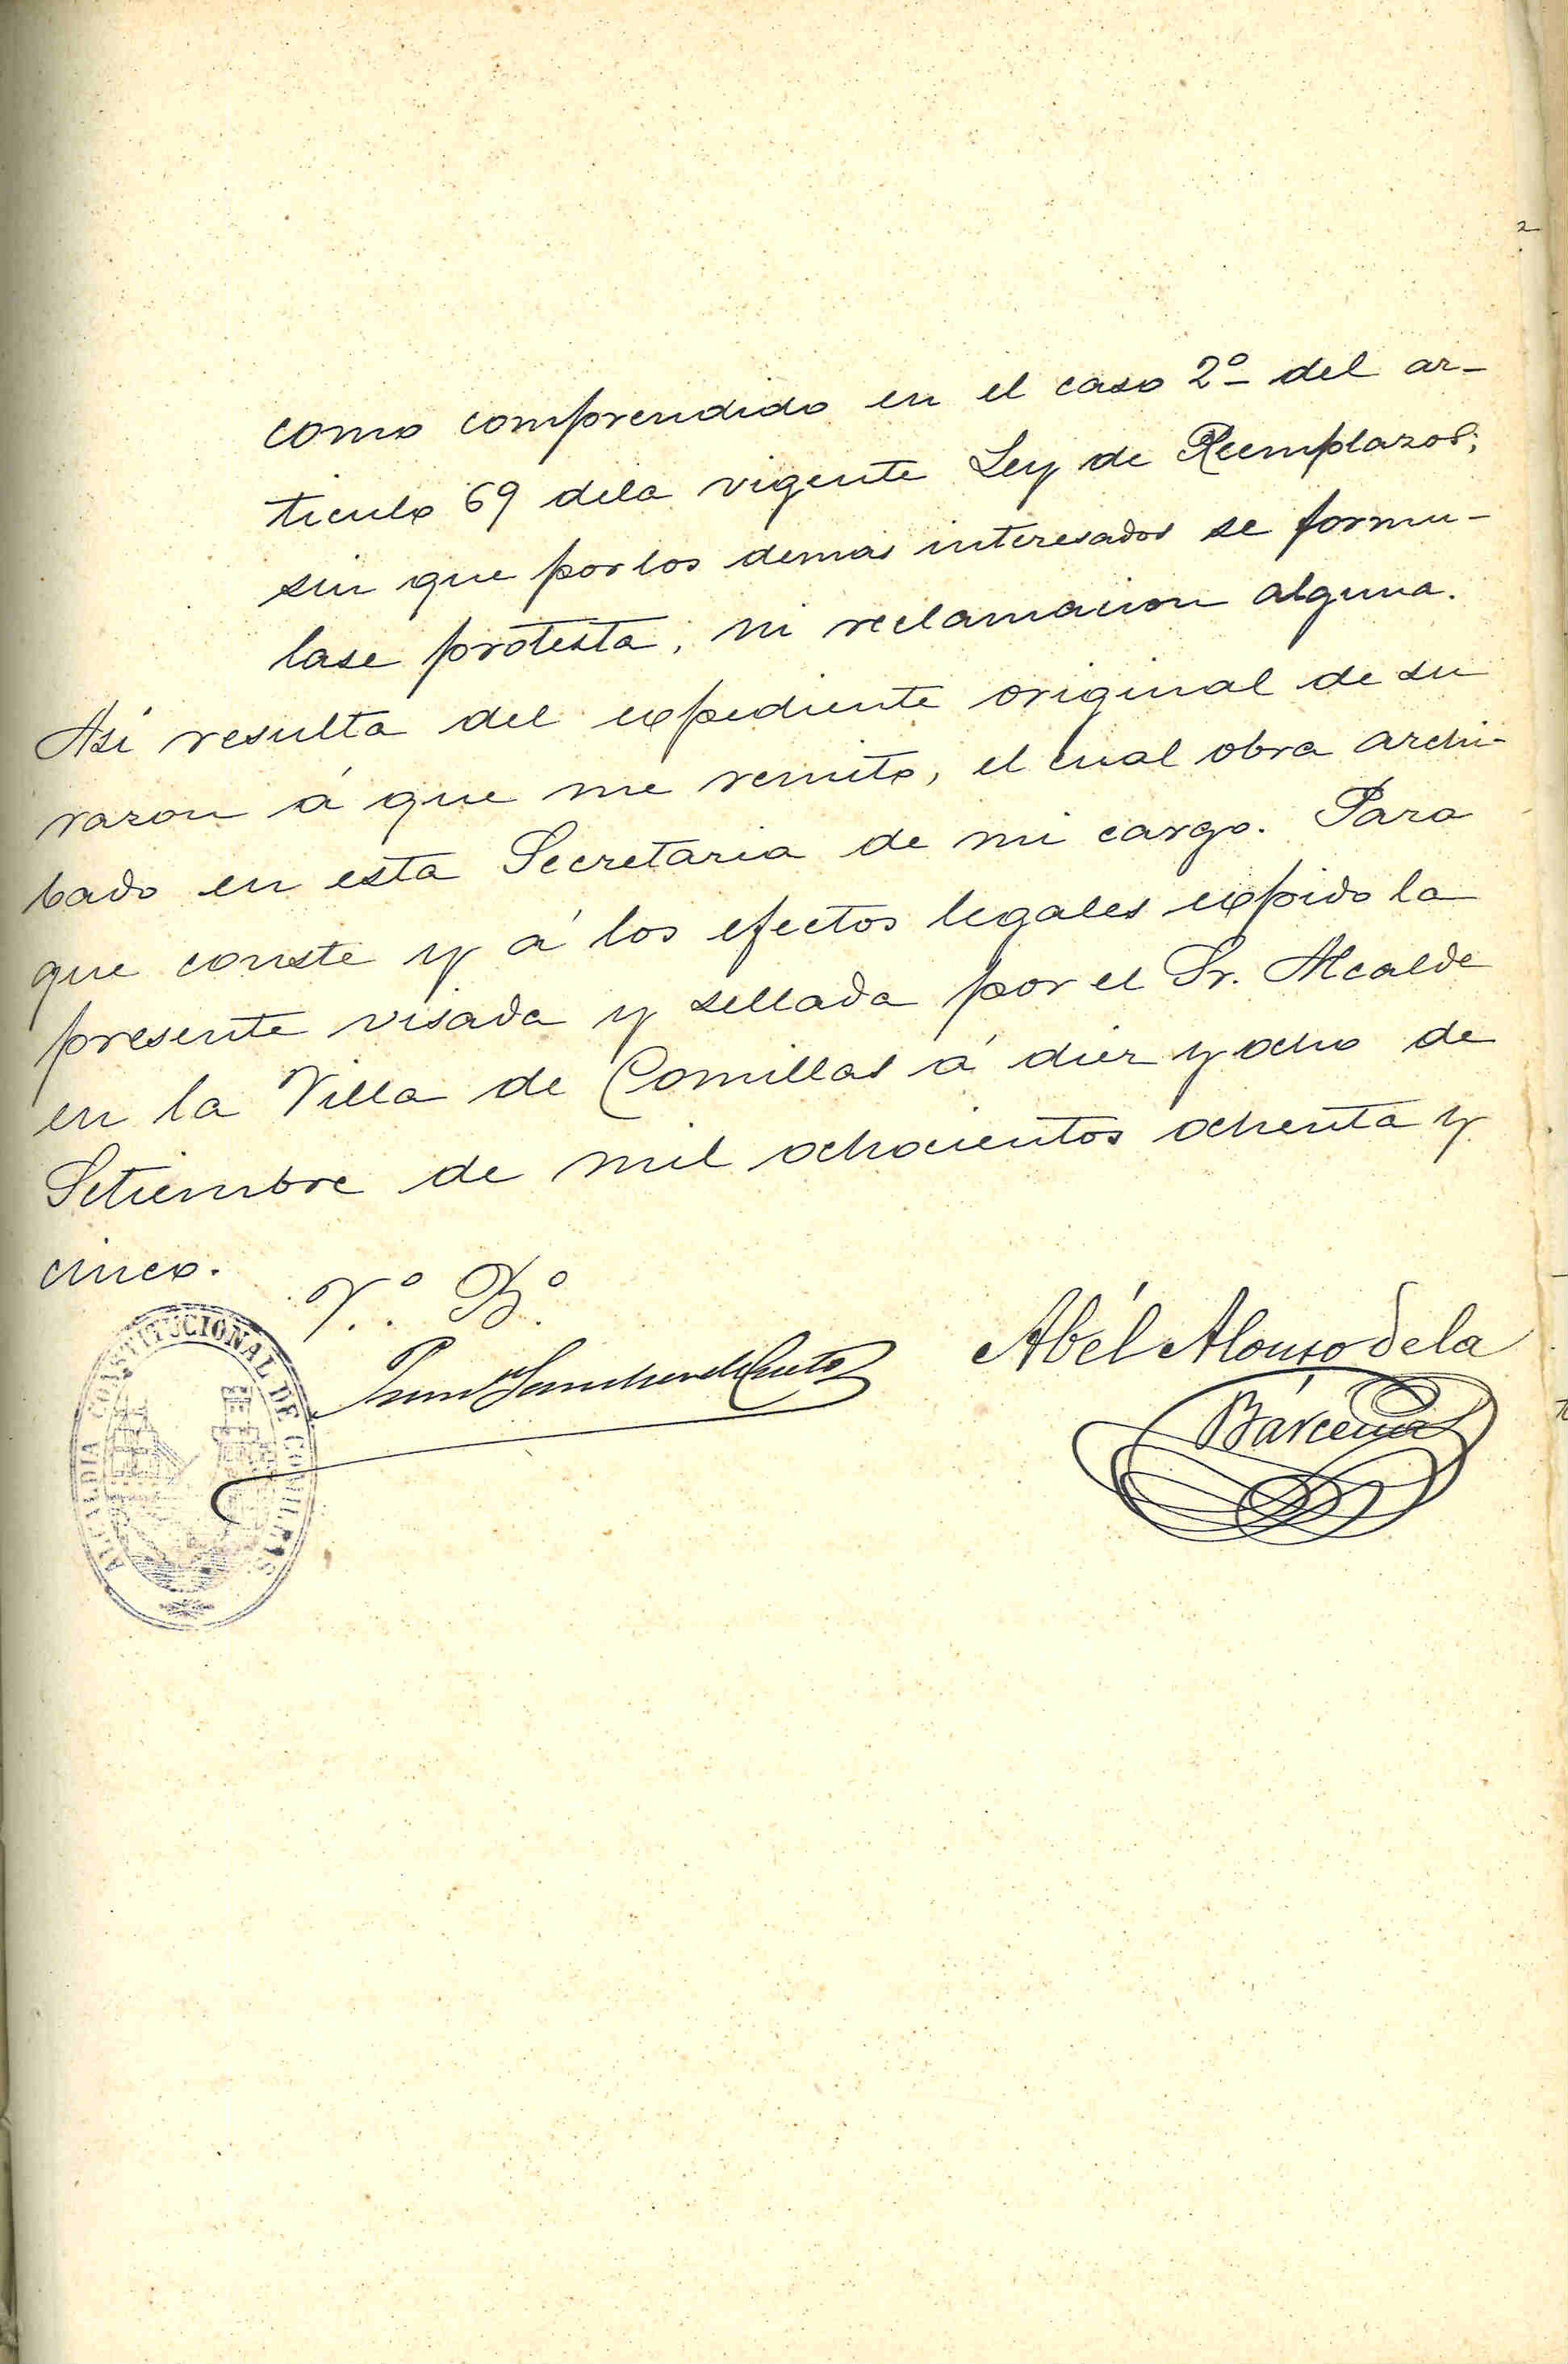 como comprendido en el caso 2º del ar-
ticulo 69 dela vigente Ley de Reemplazos;
sin que por los demas interesados se formu-
lase protesta, ni reclamacion alguna.
Asi resulta del expediente original de su
razon á que me remito, el cual obra archi-
bado en esta Secretaria de mi cargo. Para
que conste y á los efectos legales expido la
presente visada y sellada por el Sr. Alcalde
en la Villa de Comillas á diez y ocho de
Setiembre de mil ochocientos ochenta y
cinco.
V.º B.º
Abél Alonso de la
Bárcena
ALCALDIA CONSTITUCIONAL DE COMILLAS.